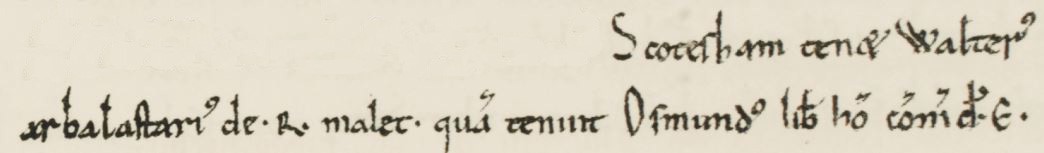 Scotesham ten& Walterꝰ
arbalastariꝰ de · R · malet · quā tenuit Osmundꝰ lib hō cōm̄ d · E ·